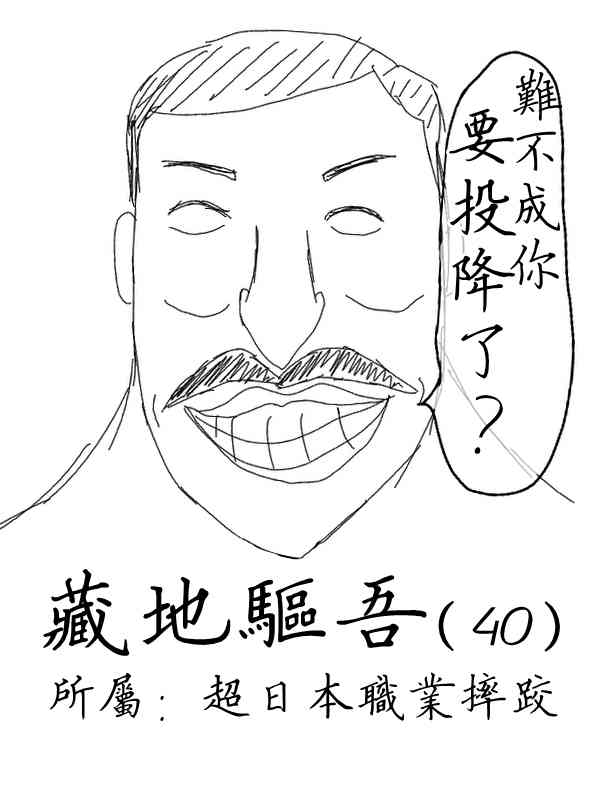 難不成你
要投降了？
藏地驅吾(40)
所屬：超日本職業摔跤